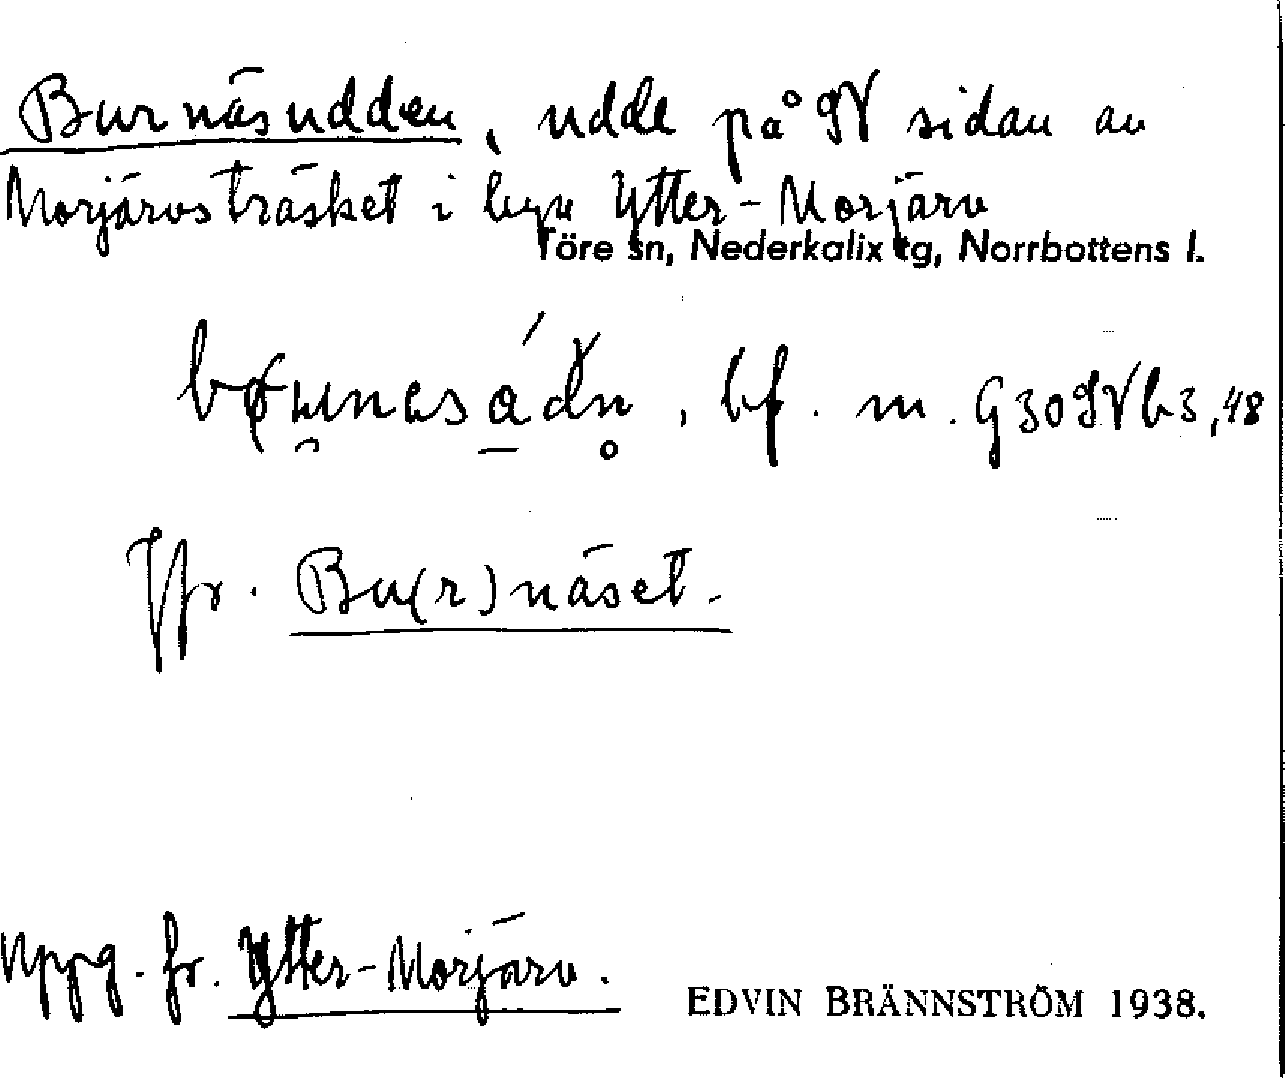 Burnäsudden, udde på N sidan av
Morjärvsträsket i byn Ytter-Morjärv
Töre sn, Nederkalix tg, Norrbottens l.
bf. m. G30NVb3,48
Jfr. Bu(r)näset.
Uppg. fr. Ytter-Morjärv.
EDVIN BRÄNNSTRÖM 1938.